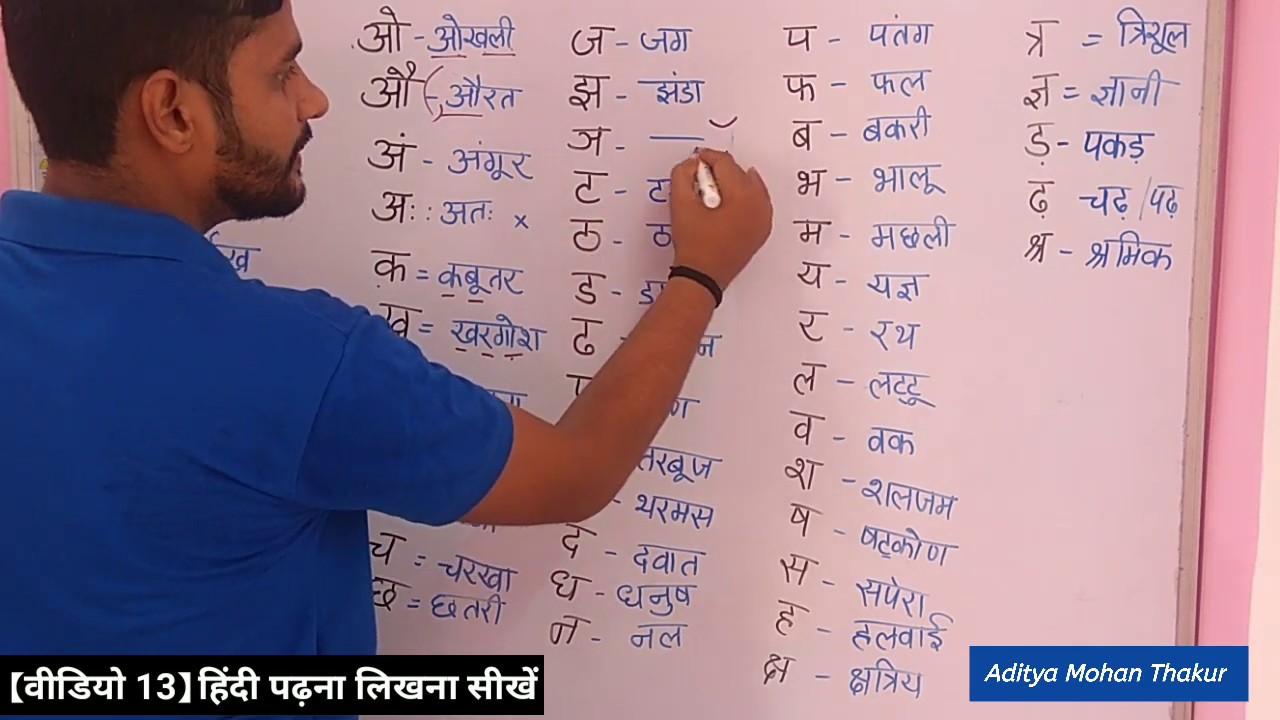 ओ - ओखली
औ - औरत
अं - अंगूर
अः : अतः ×
क = कबूतर
ख = खरगोश
च = चरखा
छ = छतरी
ज - जग
झ - झंडा
ञ -
ट - ट
ठ - ठ
ड - ड
ढ -
तरबूज
- थरमस
द - दवात
ध - धनुष
न - नल
प - पतंग
फ - फल
ब - बकरी
भ - भालू
म - मछली
य - यज्ञ
र - रथ
ल - लट्टू
व - वक
श - शलजम
ष - षट्कोण
स - सपेरा
ह - हलवाई
क्ष - क्षत्रिय
त्र = त्रिशूल
ज्ञ = ज्ञानी
ड़ - पकड़
ढ़ चढ़/पढ़
श्र - श्रमिक
【वीडियो 13】हिंदी पढ़ना लिखना सीखें
Aditya Mohan Thakur